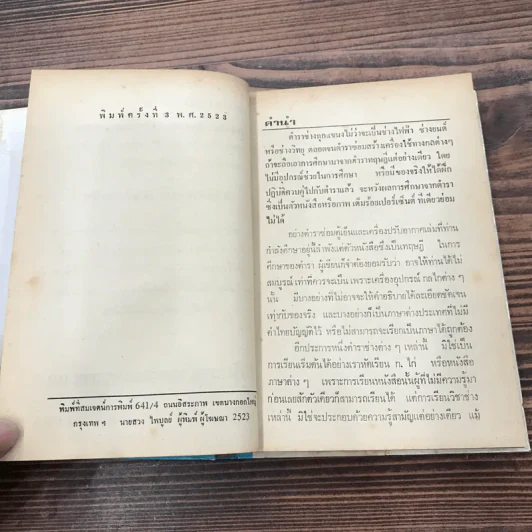 พิมพ์ครั้งที่ 3 พ.ศ.2523
พิมพ์ที่สมเจตน์การพิมพ์ 641/4 ถนนอิสระภาพ เขตบางกอกใหญ่
กรุงเทพ ฯ นายสวง ไพบูลย์ ผู้พิมพ์ ผู้โฆษณา 2523
คำนำ
ตำราช่างทุกแขนงไม่ว่าจะเป็นช่างไฟฟ้า ช่างยนต์
หรือช่างวิทยุ ตลอดจนตำราซ่อมสร้างเครื่องใช้ทางกลต่างๆ
ถ้าจะถือเอาการศึกษามาจากตำราทฤษฎีแต่อย่างเดียว โดย
ไม่มีอุปกรณ์ช่วยในการศึกษา หรือมีของจริงให้ได้ฝึก
ปฏิบัติควบคู่ไปกับตำราแล้ว จะหวังผลการศึกษาจากตำรา
ซึ่งเป็นตัวหนังสือหรือภาพ เต็มร้อยเปอร์เซ็นต์ ทีเดียวย่อม
ไม่ได้
อย่างตำราซ่อมตู้เย็นและเครื่องปรับอากาศเล่มที่ท่าน
กำลังศึกษาอยู่นี้ลำพังแต่ตัวหนังสือซึ่งเป็นทฤษฎี ในการ
ศึกษาของตำรา ผู้เขียนก็จำต้องยอมรับว่า อาจให้ท่านได้ไม่
สมบูรณ์ เท่าที่ควรจะเป็น เพราะเครื่องอุปกรณ์ กลไกต่าง ๆ
นั้น มีบางอย่างที่ไม่อาจจะให้คำอธิบายได้ละเอียดชัดเจน
เท่ากับของจริง และบางอย่างก็เป็นภาษาต่างประเทศที่ไม่มี
คำไทยบัญญัติไว้ หรือไม่สามารถจะเรียกเป็นภาษาได้ถูกต้อง
อีกประการหนึ่งตำราช่างต่าง ๆ เหล่านี้ มิใช่เป็น
การเรียนเริ่มต้นได้อย่างเราหัดเรียน ก. ไก่ หรือหนังสือ
ภาษาต่าง ๆ เพราะการเรียนหนังสือนั้นผู้ที่ไม่มีความรู้มา
ก่อนเลยสักตัวเดียวก็สามารถเรียนได้ แต่การเรียนวิชาช่าง
เหล่านี้ มิใช่จะประกอบด้วยความรู้สามัญแต่อย่างเดียว แม้